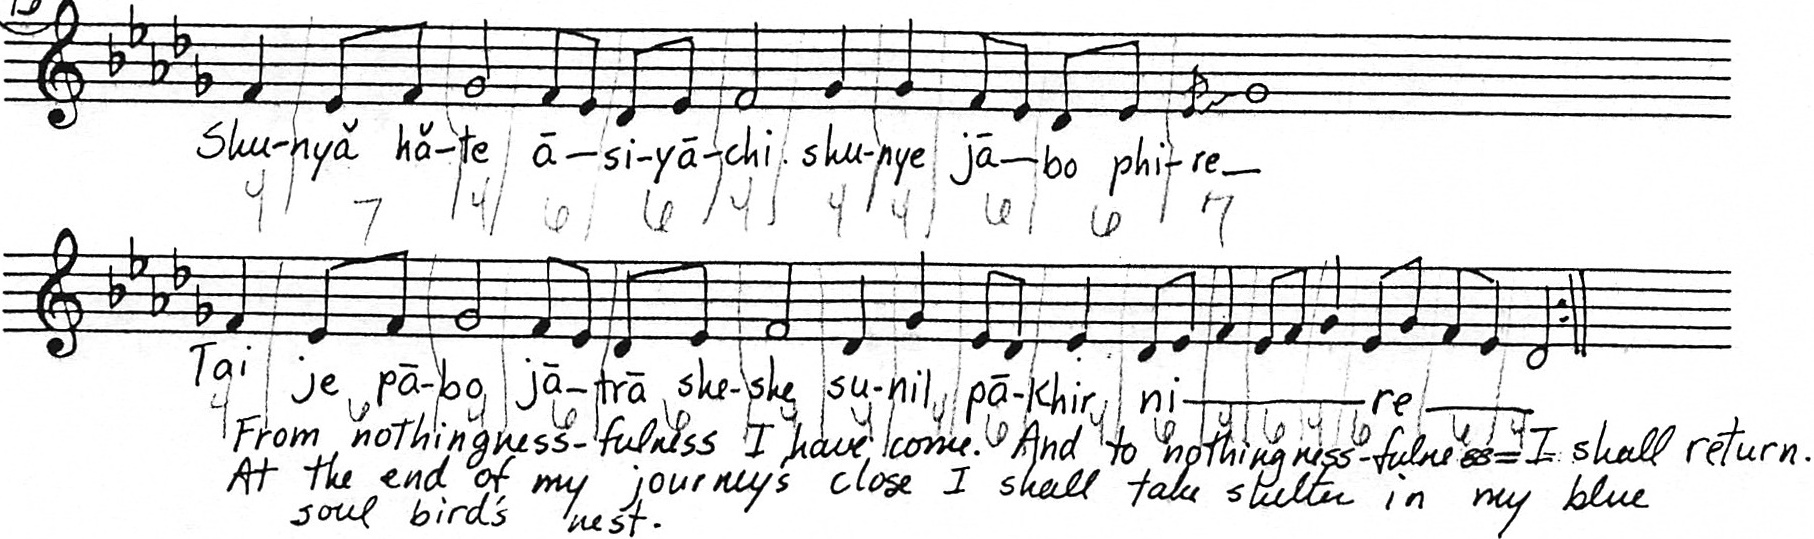 Shu-nyă hă-te ā-si-yā-chi shu-nye jā-bo phi-re
4 7 4 6 6 4 4 4 6 6 7
Tai je pā-bo jā-trā she-she su-nil pā-khir ni re
4 6 4 6 6 4 4 4 6 4 6 4 6 4 6 6 4
From nothingness-fulness I have come. And to nothingness-fulness I shall return.
At the end of my journey's close I shall take shelter in my blue
soul bird's nest.